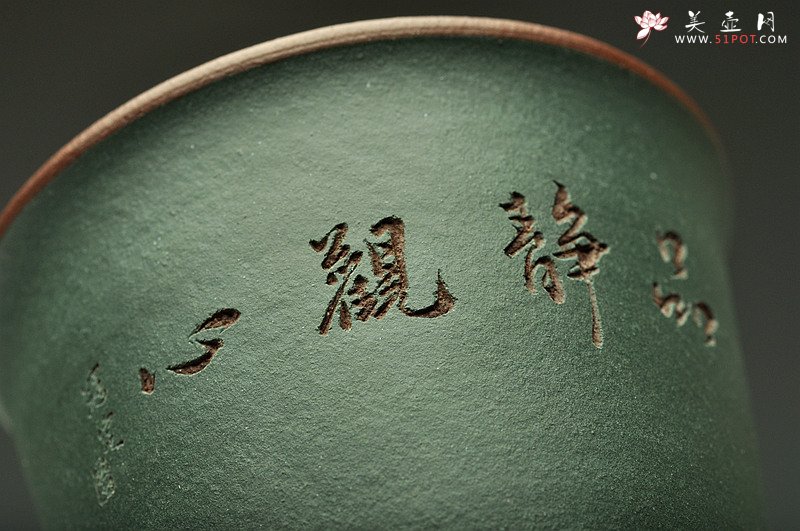 美壶网
WWW.51POT.COM
品靜觀心